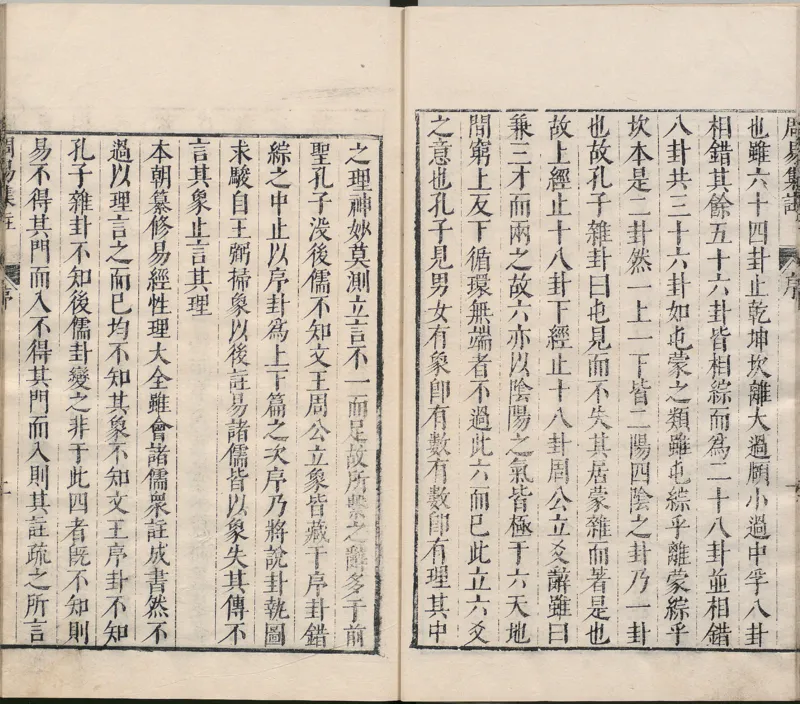 周易集註
序
也雖六十四卦止乾坤坎離大過頤小過中孚八卦
相錯其餘五十六卦皆相綜而為二十八卦並相錯
八卦共三十六卦如屯蒙之類雖屯綜乎離蒙綜乎
坎本是二卦然一上一下皆二陽四陰之卦乃一卦
也故孔子雜卦曰屯見而不失其居蒙雜而著是也
故上經止十八卦下經止十八卦周公立爻辭雖曰
兼三才而兩之故六亦以陰陽之氣皆極于六天地
間窮上反下循環無端者不過此六而已此立六爻
之意也孔子見男女有象即有數有數即有理其中
之理神妙莫測立言不一而足故所繫之辭多于前
聖孔子没後儒不知文王周公立象皆藏于序卦錯
綜之中止以序卦為上下篇之次序乃將說卦執圖
求駿自王弼掃象以後註易諸儒皆以象失其傳不
言其象止言其理
本朝纂修易經性理大全雖會諸儒衆註成書然不
過以理言之而已均不知其象不知文王序卦不知
孔子雜卦不知後儒卦變之非于此四者既不知則
易不得其門而入不得其門而入則其註疏之所言
周易集註
序